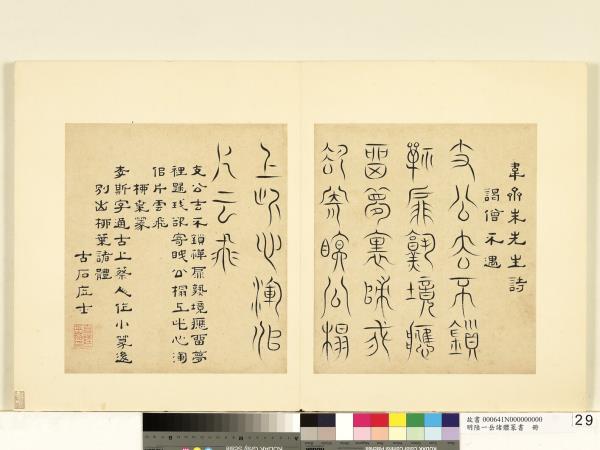 韋泉朱先生詩
謁僧不遇
支公去不鎖
禪扉熟境應
留夢裏
卻寄眠公榻
上此心渾作
片云飛
支公去不鎖禪扉熟境應留夢
裡 卻寄 公榻上此心渾
作片雲飛
柳葉篆
李斯字通古上蔡人作小篆後
別出柳葉諸體
古石居士
故書 000641N000000000
明陸一岳諸體篆書 冊
29